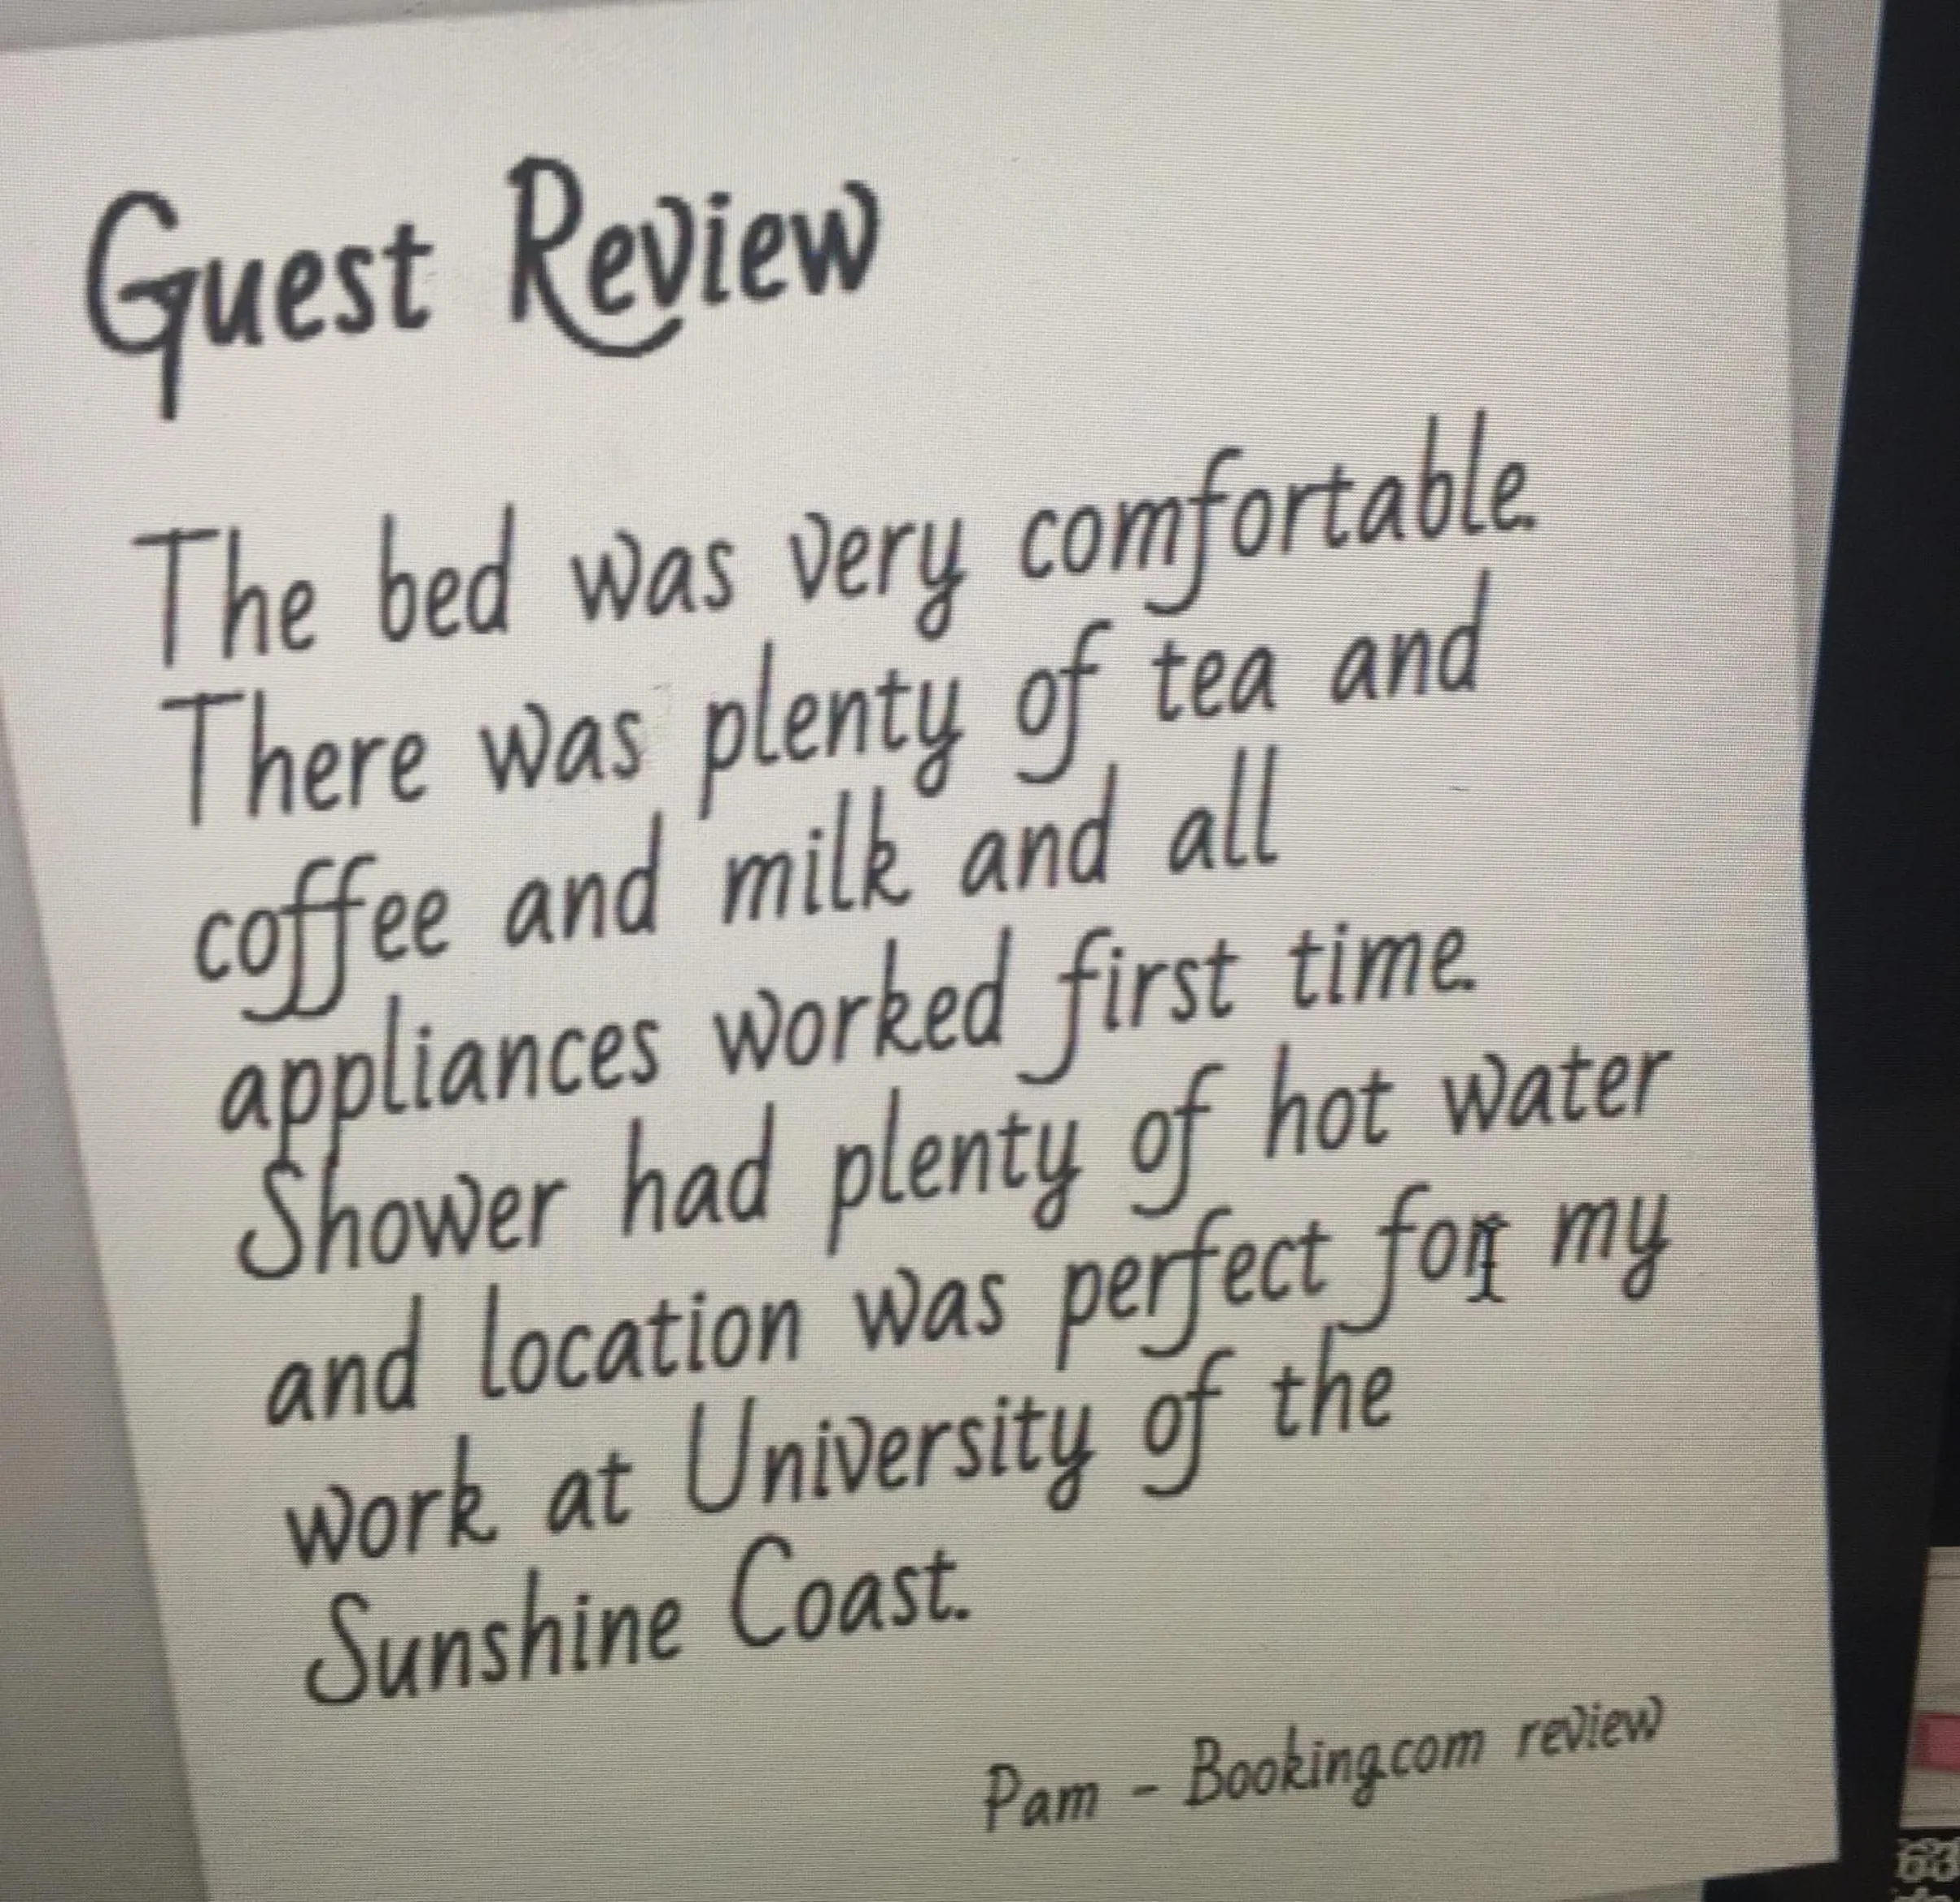 Guest Review
The bed was very comfortable.
There was plenty of tea and
coffee and milk and all
appliances worked first time.
Shower had plenty of hot water
and location was perfect for my
work at University of the
Sunshine Coast.
Pam - Booking.com review